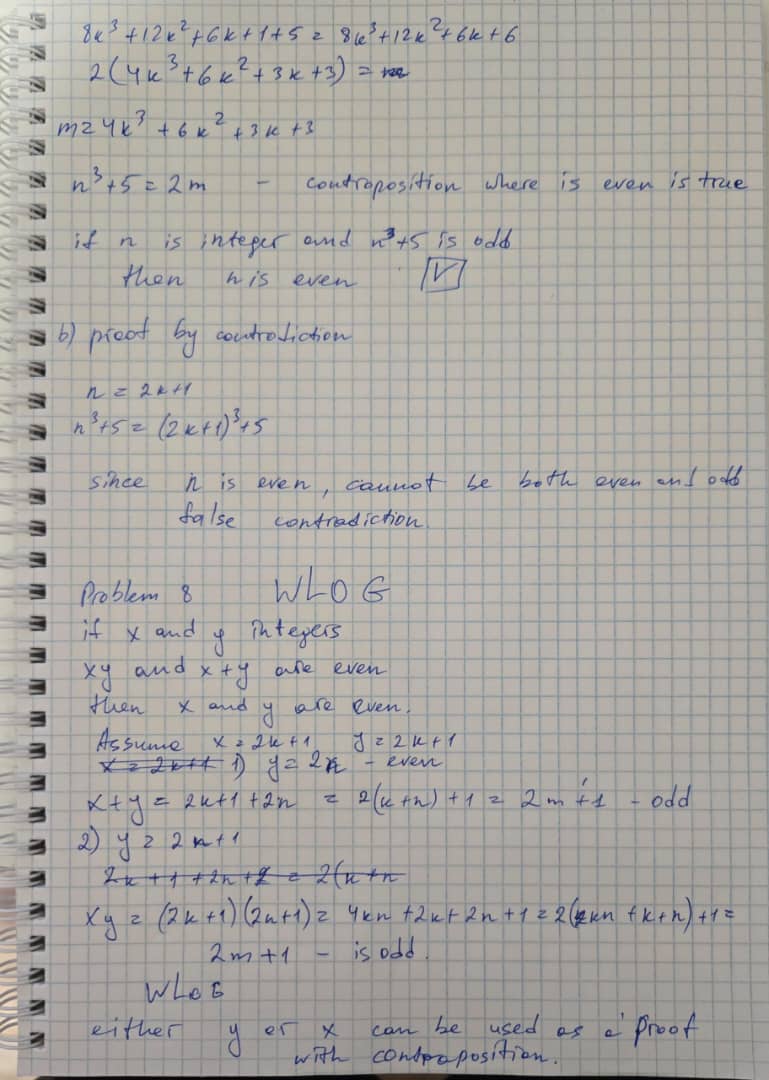 8k³ + 12k² + 6k + 1 + 5 = 8k³ + 12k² + 6k + 6
2(4k³ + 6k² + 3k + 3) =
m = 4k³ + 6k² + 3k + 3
n³ + 5 = 2m - contraposition where is even is true
if n is integer and n³+5 is odd
then n is even
b) proof by contradiction
n = 2k+1
n³+5 = (2k+1)³+5
since n is even, cannot be both even and odd
false contradiction.
Problem 8 WLOG
if x and y integers
xy and x+y are even
then x and y are even.
Assume x = 2k+1 y = 2k+1
x = 2k+1 1) y = 2n - even
x+y = 2k+1+2n = 2(k+n)+1 = 2m+1 - odd
2) y = 2n+1
2k+1+2n+2 = 2(k+n
xy = (2k+1)(2n+1) = 4kn+2k+2n+1 = 2(2kn+k+n)+1 =
2m+1 - is odd.
WLOG
either y or x can be used as a proof
with contraposition.